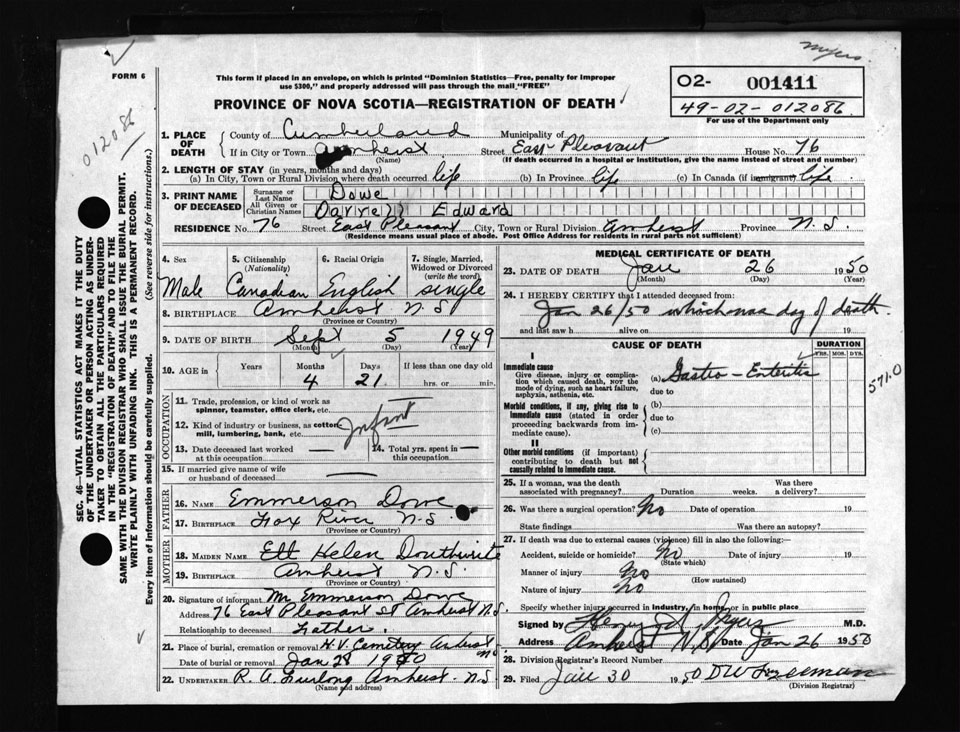 myers
FORM 6
This form if placed in an envelope, on which is printed "Dominion Statistics—Free, penalty for improper
use $300," and properly addressed will pass through the mail "FREE"
O2- 001411
49-02-012086
For use of the Department only
PROVINCE OF NOVA SCOTIA—REGISTRATION OF DEATH
012086
1. PLACE OF DEATH
County of Cumberland Municipality of
If in City or Town Amherst Street East Pleasant House No. 76
(Name) (If death occurred in a hospital or institution, give the name instead of street and number)
2. LENGTH OF STAY (in years, months and days)
(a) In City, Town or Rural Division where death occurred life (b) In Province life (c) In Canada (if immigrant) life
3. PRINT NAME OF DECEASED
Surname or Last Name Dowe
All Given or Christian Names Darrell Edward
RESIDENCE No. 76 Street East Pleasant City, Town or Rural Division Amherst Province N.S.
(Residence means usual place of abode. Post Office Address for residents in rural parts not sufficient)
4. Sex 5. Citizenship (Nationality) 6. Racial Origin 7. Single, Married, Widowed or Divorced (write the word)
Male Canadian English single
8. BIRTHPLACE Amherst N.S.
(Province or Country)
9. DATE OF BIRTH Sept 5 1949
(Month) (Day) (Year)
10. AGE in Years Months Days If less than one day old
4 21 hrs. or min.
OCCUPATION
11. Trade, profession, or kind of work as
spinner, teamster, office clerk, etc.
12. Kind of industry or business, as cotton
mill, lumbering, bank, etc. Infant
13. Date deceased last worked at this occupation —
14. Total yrs. spent in this occupation —
15. If married give name of wife
or husband of deceased —
FATHER
16. NAME Emmerson Dowe
17. BIRTHPLACE Fox River N.S.
(Province or Country)
MOTHER
18. MAIDEN NAME Helen
19. BIRTHPLACE Amherst N.S.
(Province or Country)
20. Signature of informant Mr Emmerson Dowe
Address 76 East Pleasant St Amherst N.S.
Relationship to deceased Father.
21. Place of burial, cremation or removal H.V. Cemetery Amherst N.S.
Date of burial or removal Jan 28 1950
22. UNDERTAKER R. A. Furlong Amherst N.S.
(Name and address)
MEDICAL CERTIFICATE OF DEATH
23. DATE OF DEATH Jan 26 1950
(Month) (Day) (Year)
24. I HEREBY CERTIFY that I attended deceased from:
Jan 26/50 which was day of death.
and last saw h alive on 19
CAUSE OF DEATH
DURATION
YRS. MOS. DYS.
I
Immediate cause
Give disease, injury or complication which caused death, NOT the mode of dying, such as heart failure, asphyxia, asthenia, etc.
(a) Gastro-Enteritis
due to
571.0
Morbid conditions, if any, giving rise to immediate cause (stated in order proceeding backwards from immediate cause).
(b)
due to
(c)
II
Other morbid conditions (if important) contributing to death but not causally related to immediate cause.
25. If a woman, was the death Was there
associated with pregnancy? Duration weeks. a delivery?
26. Was there a surgical operation? No Date of operation 19
State findings Was there an autopsy?
27. If death was due to external causes (violence) fill in also the following:
Accident, suicide or homicide? No Date of injury 19
(State which)
Manner of injury No
(How sustained)
Nature of injury No
Specify whether injury occurred in industry, in home, or in public place
Signed by Myers M.D.
Address Amherst N.S. Date Jan 26 1950
28. Division Registrar's Record Number
29. Filed Jan 30 1950 DW Freeman
(Division Registrar)
SEC. 46—VITAL STATISTICS ACT MAKES IT THE DUTY
OF THE UNDERTAKER OR PERSON ACTING AS UNDER-
TAKER TO OBTAIN ALL THE PARTICULARS REQUIRED
IN THE "REGISTRATION OF DEATH" AND TO FILE THE
SAME WITH THE DIVISION REGISTRAR WHO SHALL ISSUE THE BURIAL PERMIT.
WRITE PLAINLY WITH UNFADING INK. THIS IS A PERMANENT RECORD.
Every item of information should be carefully supplied. (See reverse side for instructions.)